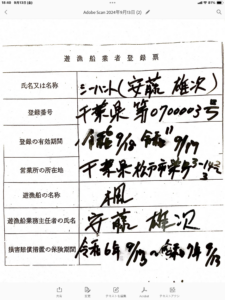 Adobe Scan 2024年9月13日
遊漁船業者登録票
氏名又は名称
シーハント(安藤 雄次)
登録番号
千葉県 第0700003号
登録の有効期間
令和 9/18 令和 9/17
営業所の所在地
千葉県松戸市栄町3-142
遊漁船の名称
楓
遊漁船業務主任者の氏名
安藤 雄次
損害賠償措置の保険期間
令和6年 9/13〜令和7年 9/13